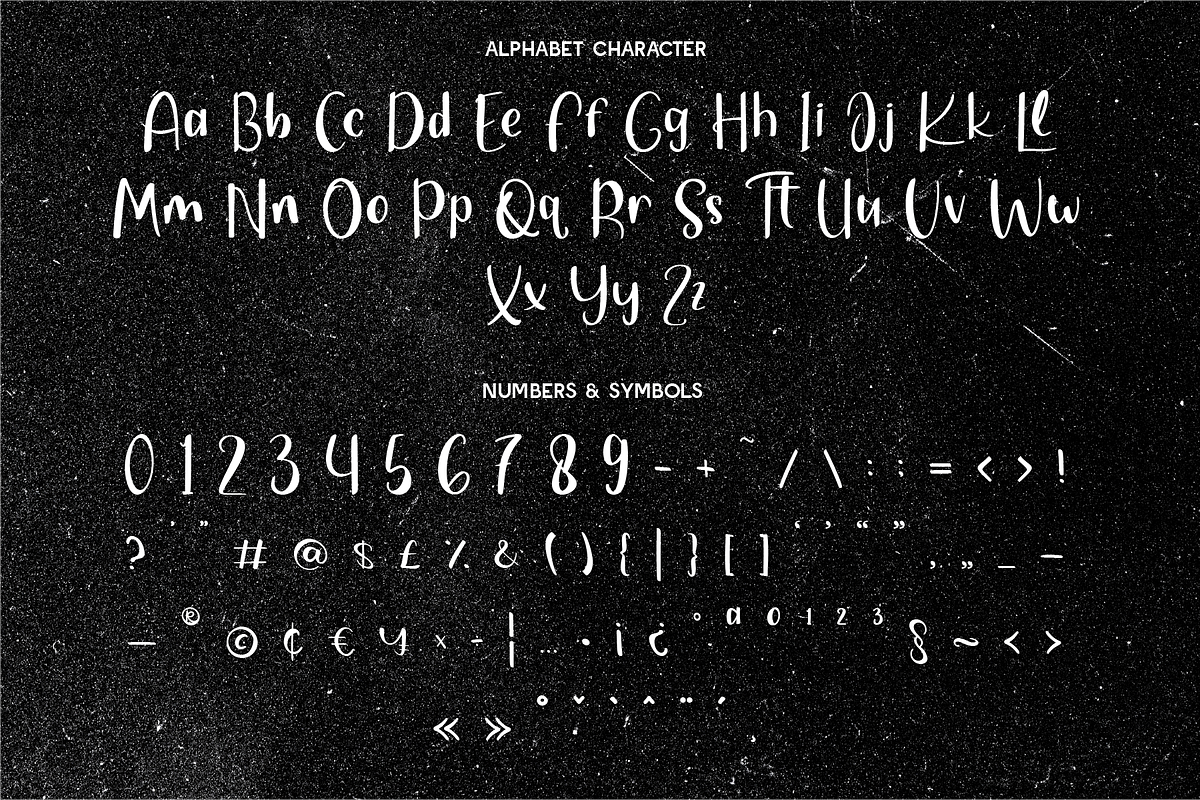 ALPHABET CHARACTER
Aa Bb Cc Dd Ee Ff Gg Hh Ii Jj Kk Ll
Mm Nn Oo Pp Qq Rr Ss Tt Uu Vv Ww
Xx Yy Zz
NUMBERS & SYMBOLS
0 1 2 3 4 5 6 7 8 9 - + ~ / \ : ; = < > !
? ' " # @ $ £ % & ( ) { | } [ ] ‘ ’ “ ” ‚ „ _ –
— ® © ¢ € ¥ × - ¦ … · ¡ ¿ ° ª º ¹ ² ³ § ~ ‹ ›
« » ˚ ˇ ` ^ ¨ ´